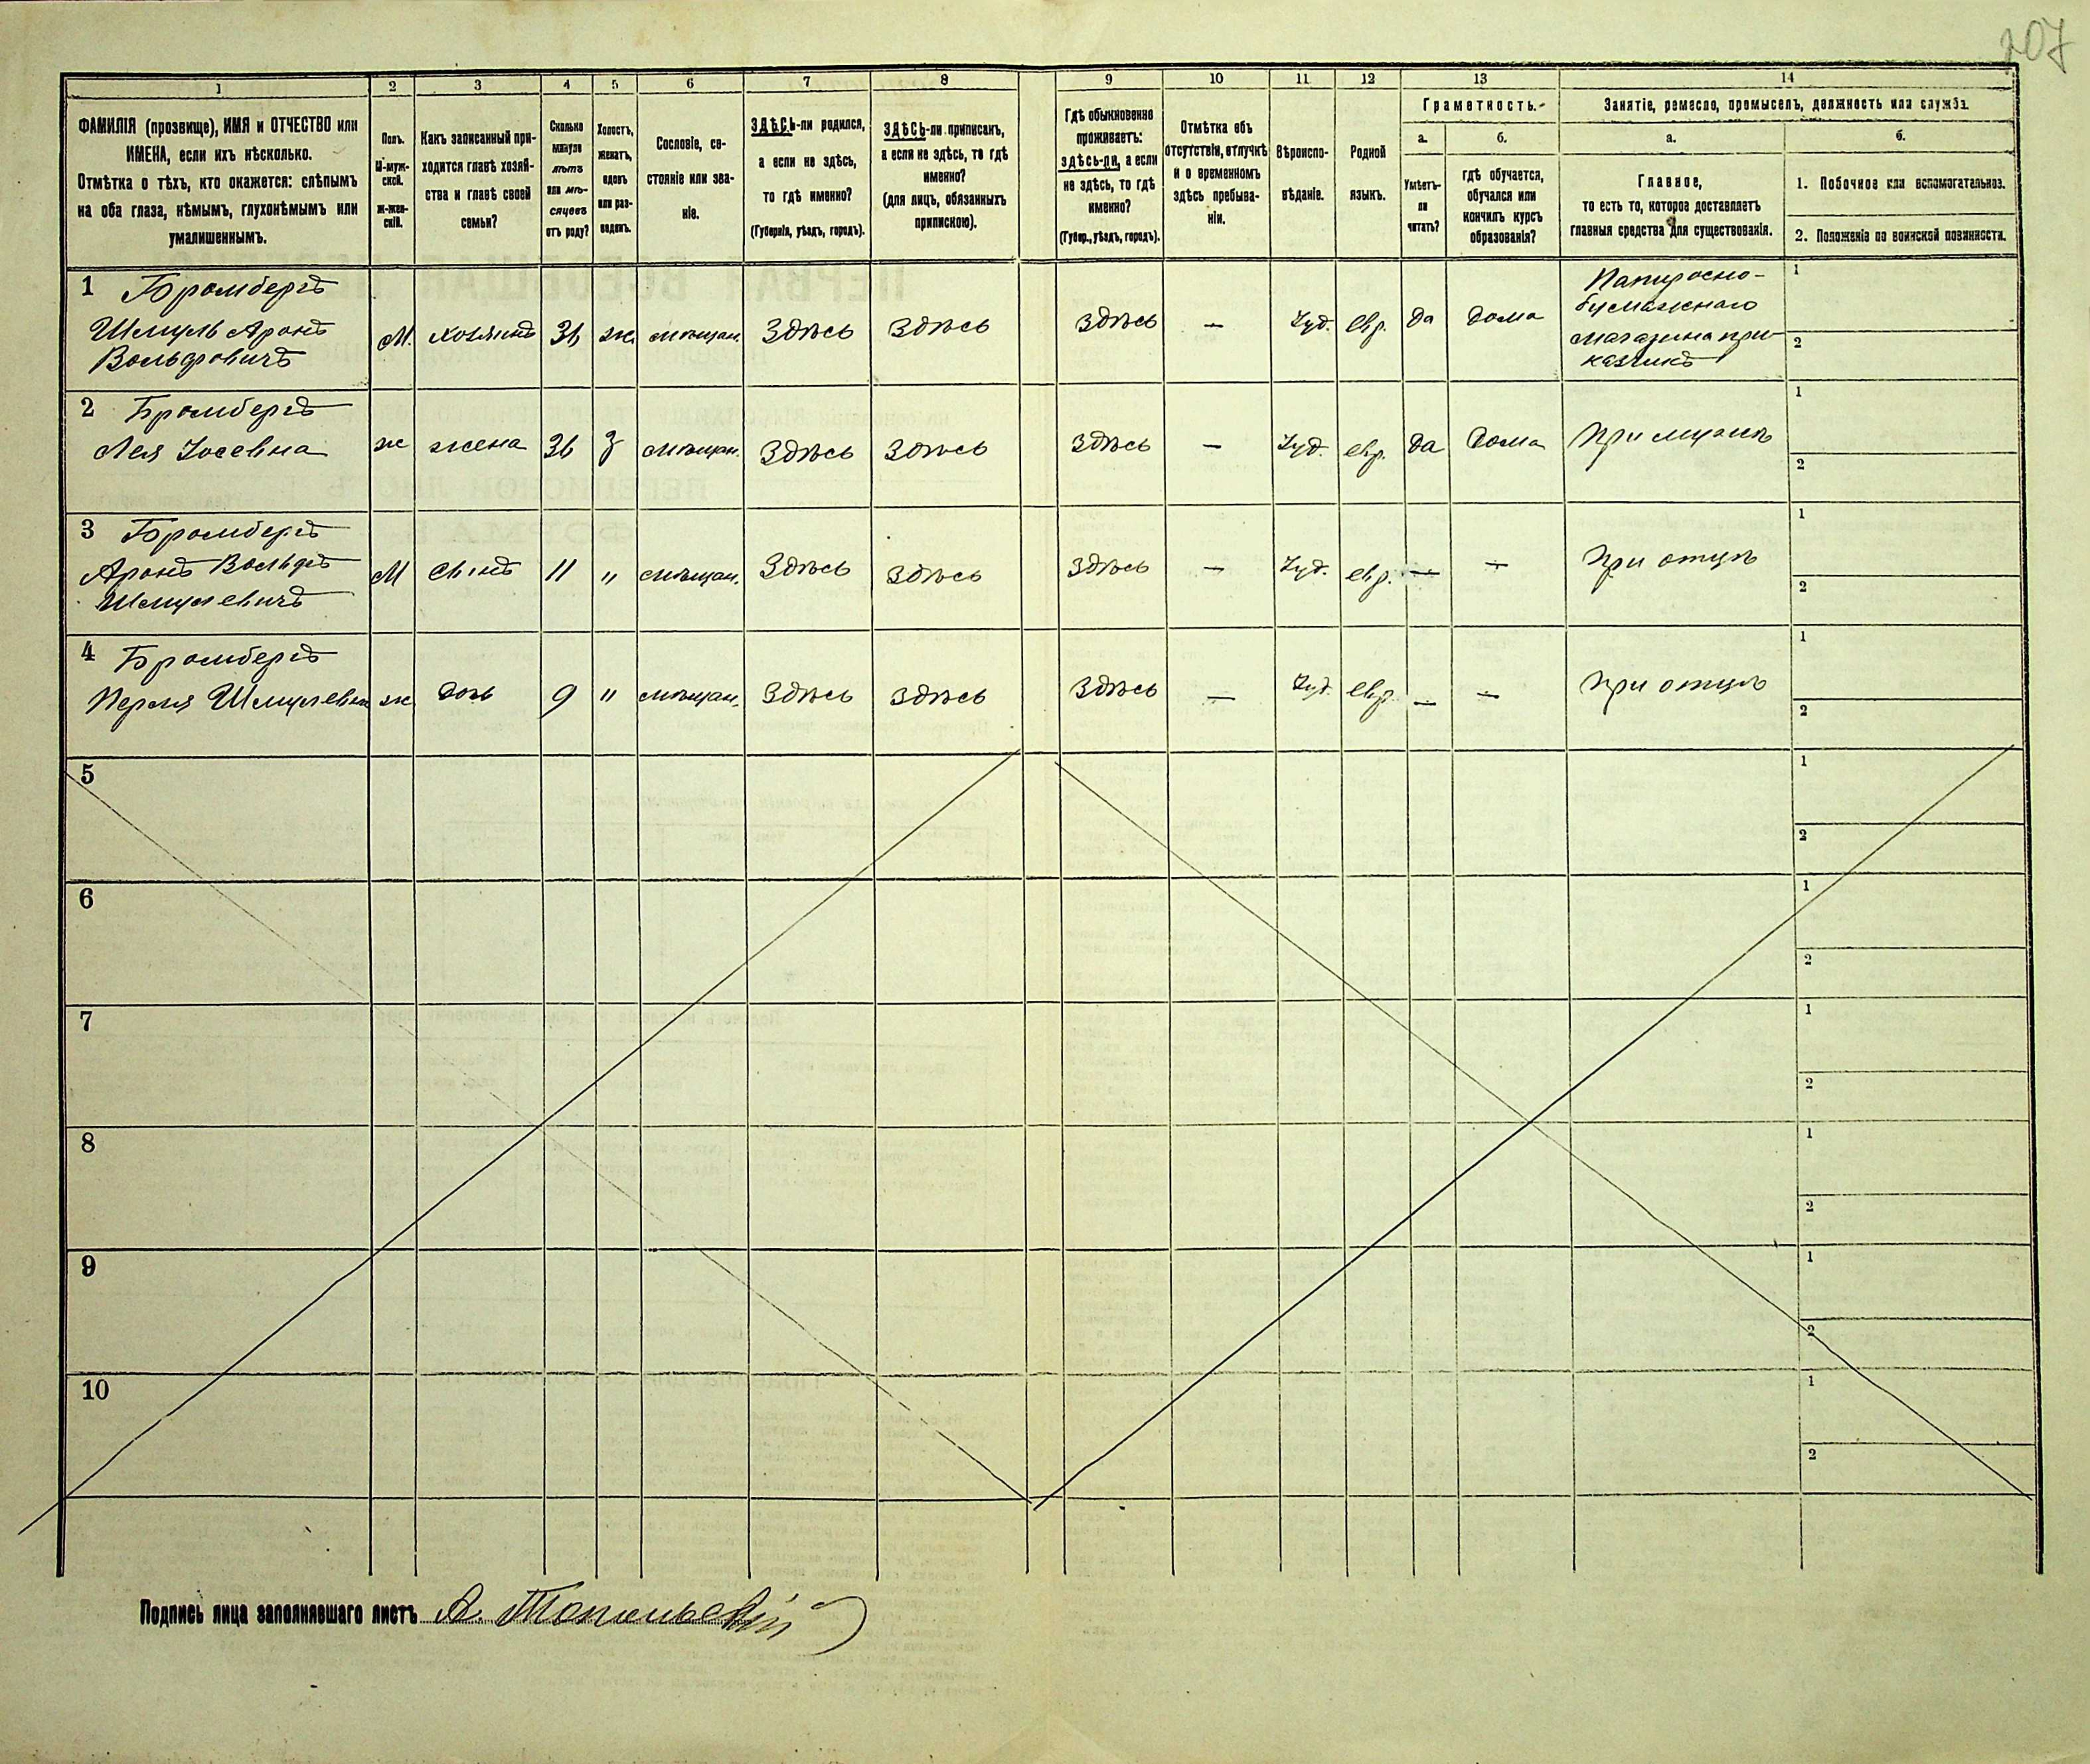 207
1 2 3 4 5 6 7 8 9 10 11 12 13 14
ФАМИЛІЯ (прозвище), ИМЯ и ОТЧЕСТВО или
ИМЕНА, если ихъ нѣсколько.
Отмѣтка о тѣхъ, кто окажется: слѣпымъ
на оба глаза, нѣмымъ, глухонѣмымъ или
умалишеннымъ.
Полъ.
М-муж-
ской.
ж-жен-
скій.
Какъ записанный при-
ходится главѣ хозяй-
ства и главѣ своей
семьи?
Сколько
минуло
лѣтъ
или мѣ-
сяцевъ
отъ роду?
Холостъ,
женатъ,
вдовъ
или раз-
веденъ.
Сословіе, со-
стояніе или зва-
ніе.
ЗДѢСЬ-ли родился,
а если не здѣсь,
то гдѣ именно?
(Губернія, уѣздъ, городъ).
ЗДѢСЬ-ли приписанъ,
а если не здѣсь, то гдѣ
именно?
(для лицъ, обязанныхъ
припискою).
Гдѣ обыкновенно
проживаетъ:
здѣсь-ли, а если
не здѣсь, то гдѣ
именно?
(Губер., уѣздъ, городъ).
Отмѣтка объ
отсутствіи, отлучкѣ
и о временномъ
здѣсь пребыва-
ніи.
Вѣроиспо-
вѣданіе.
Родной
языкъ.
Грамотность.
а.
Умѣетъ-
ли
читать?
б.
гдѣ обучается,
обучался или
кончилъ курсъ
образованія?
Занятіе, ремесло, промыселъ, должность или служба.
а.
Главное,
то есть то, которое доставляетъ
главныя средства для существованія.
б.
1. Побочное или вспомогательное.
2. Положеніе по воинской повинности.
1 Бромбергъ
Шмуль Аронъ
Вольфовичъ
М. хозяинъ 36 ж. мѣщан. Здѣсь Здѣсь Здѣсь — Іуд. евр. да дома
Папиросно-
бумажнаго
магазина при-
казчикъ
1
2
2 Бромбергъ
Лея Іосевна ж жена 36 З мѣщан. Здѣсь Здѣсь Здѣсь — Іуд. евр. да дома При мужѣ
1
2
3 Бромбергъ
Аронъ Вольфъ
Шмулевичъ
М сынъ 11 " мѣщан. Здѣсь Здѣсь Здѣсь — Іуд. евр. — — При отцѣ
1
2
4 Бромбергъ
Перля Шмулевна ж дочь 9 " мѣщан. Здѣсь Здѣсь Здѣсь — Іуд. евр. — — При отцѣ
1
2
5 1
2
6 1
2
7 1
2
8 1
2
9 1
2
10 1
2
Подпись лица заполнявшаго листъ А. Топольскій